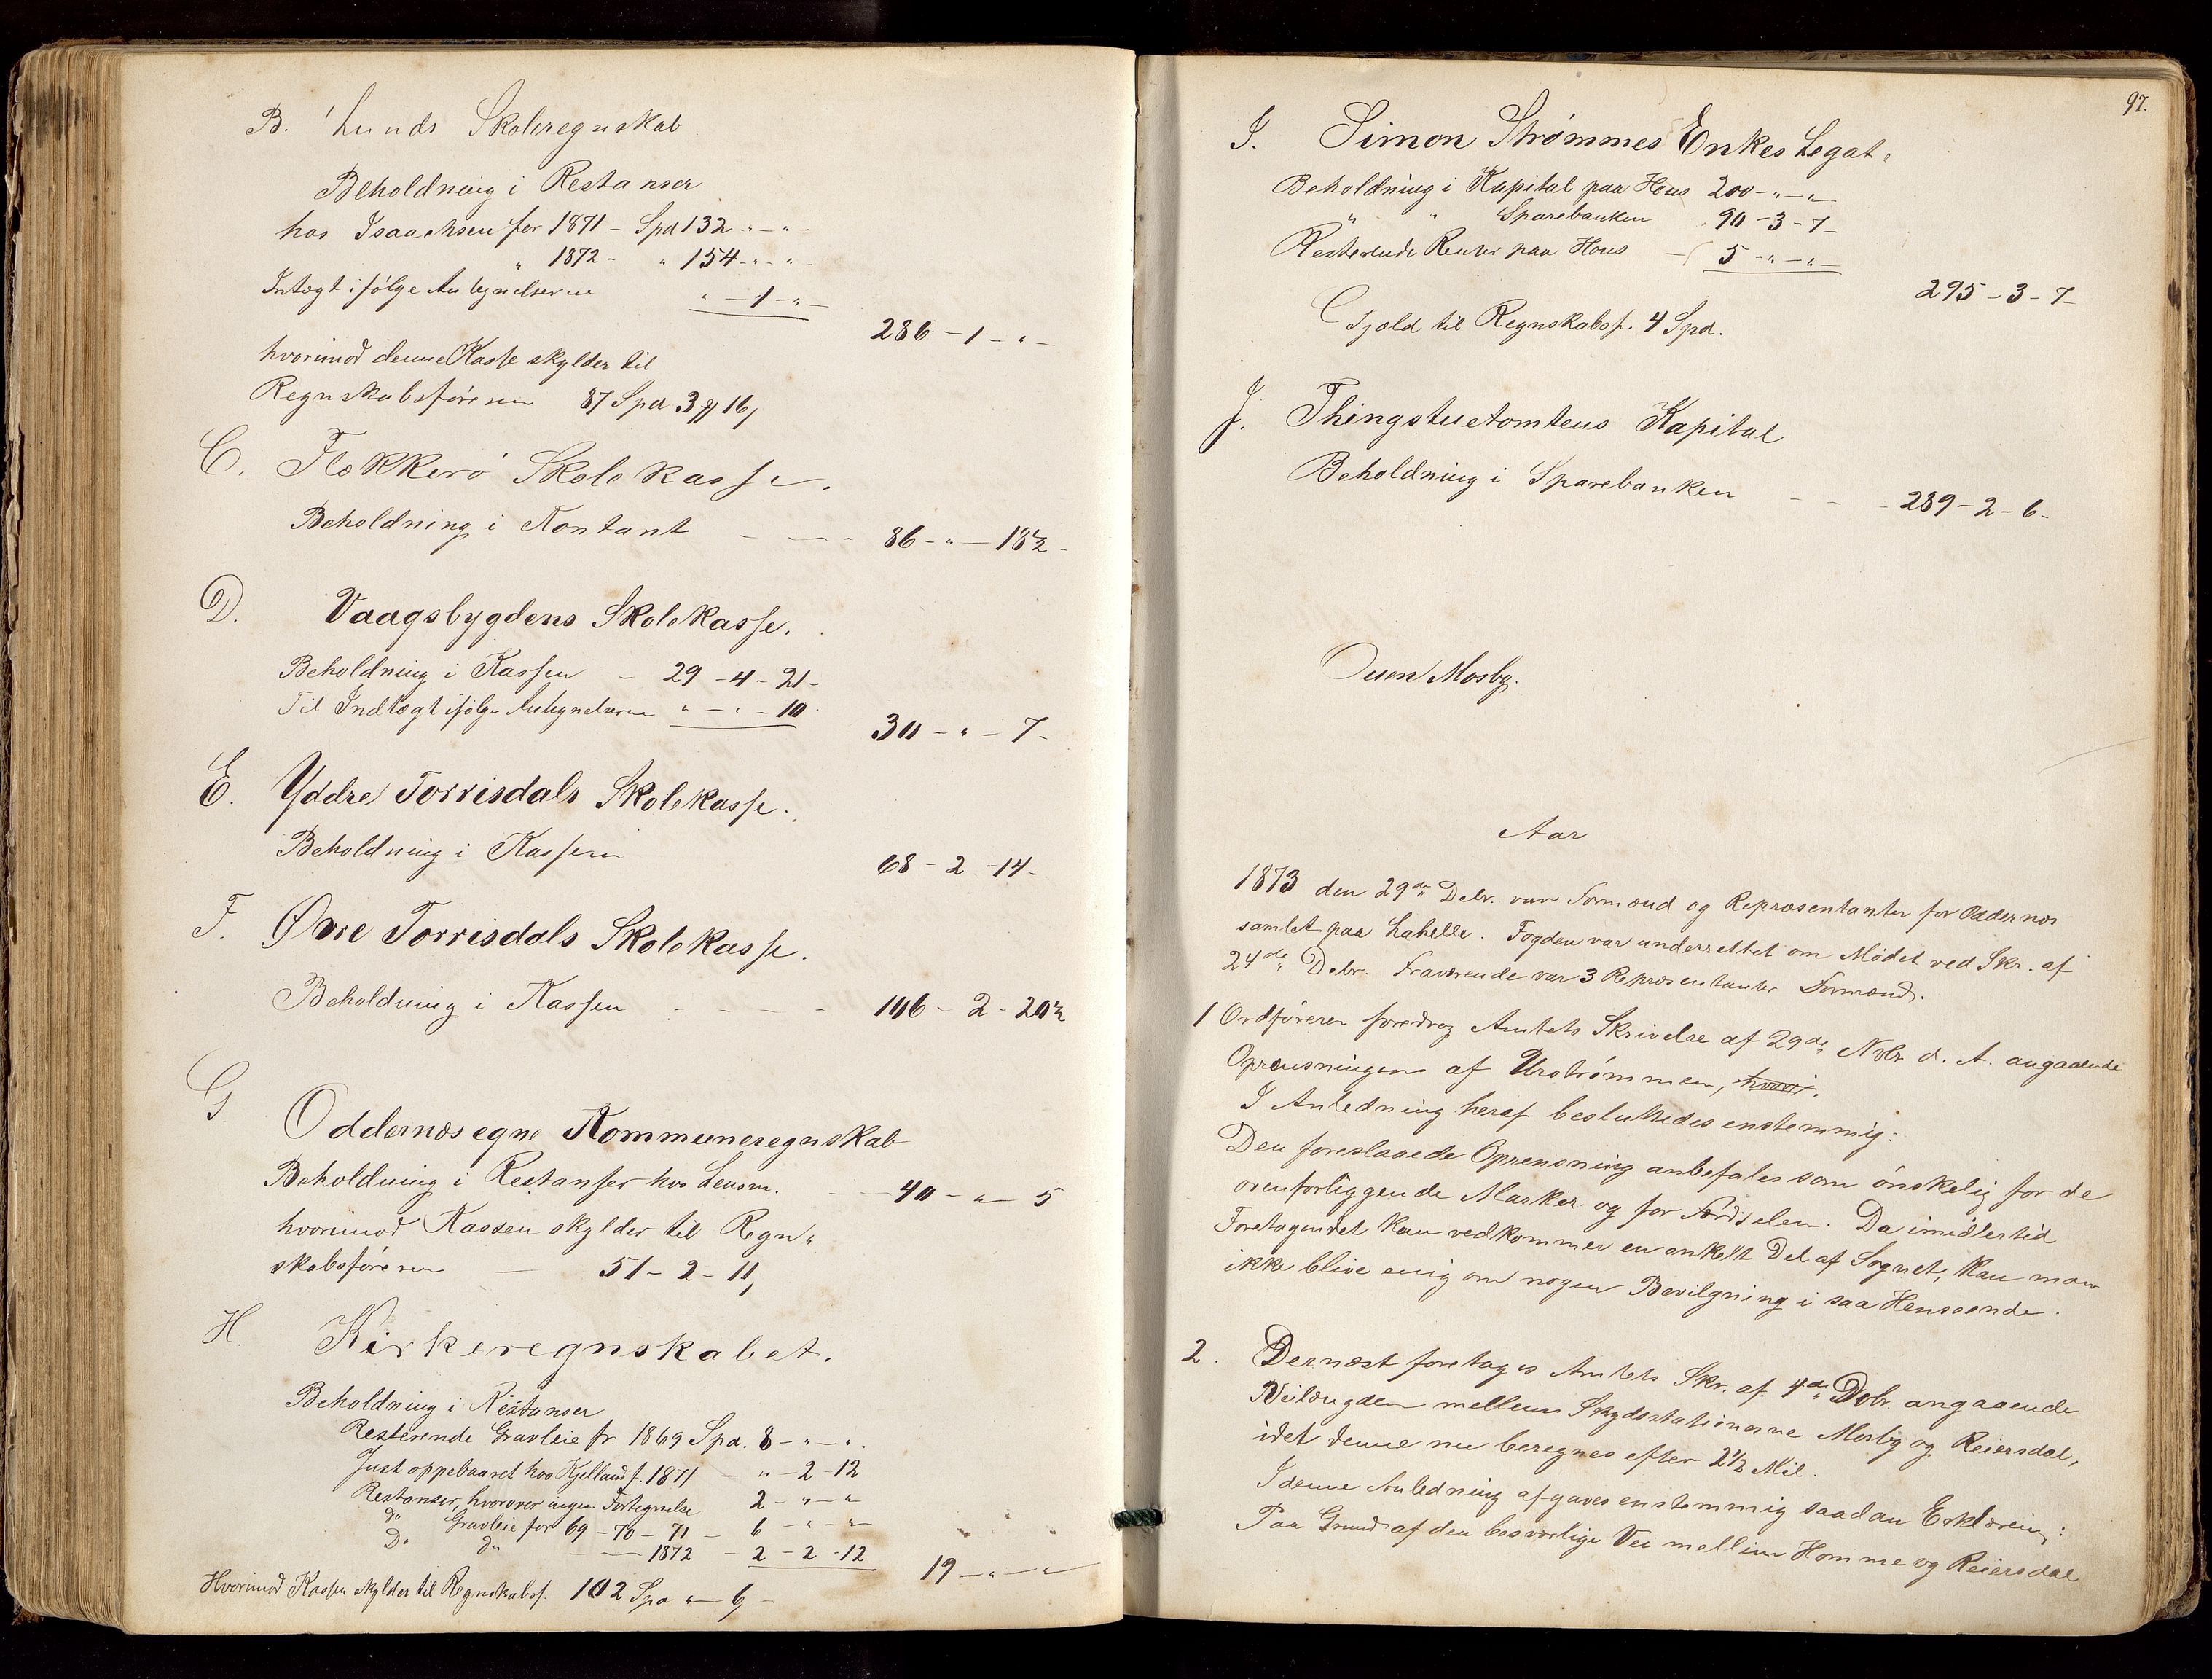 B. Lunds Skoleregnskab.
Beholdning i Restanser
hos Isaachsen for 1871 - Spd 132 - " -
" 1872 - " 154 - " -
Intægt ifølge Antegnelserne " - 1 - " -
286 - 1 - " -
hvorimod denne Kasse skylder til
Regnskabsføreren 87 Spd 3 # 16,
C. Flekkerø Skolekasse.
Beholdning i Kontant - - - 86 - " - 18½ -
D. Vaagsbygdens Skolekasse.
Beholdning i Kassen - 29 - 4 - 21 -
Til Indtægt ifølge Antegnelserne " - " - 10
30 - " - 7 -
E. Yddre Torrisdals Skolekasse.
Beholdning i Kassen 68 - 2 - 14 -
F. Øvre Torrisdals Skolekasse.
Beholdning i Kassen - - - - 106 - 2 - 20½
G. Oddernæs egne Kommuneregnskab
Beholdning i Restanser hos Lensm. - 40 - " - 5
hvorimod Kassen skylder til Regn"
skabsføreren - 51 - 2 - 11,
H. Kirkeregnskabet.
Beholdning i Restanser
Resterende Gravleie fr. 1869 Spd. 8 - " - " -
Just oppebaaret hos Kjelland f. 1871 - " - 2 - 12
Restanser, hvorover ingen Fortegnelse 2 - " - "
do Gravleie for 69 - 70 - 71 - 6 - " - "
Do do - 1872 - 2 - 2 - 12
19 - " - "
Hvorimod Kassen skylder til Regnskabsf. 102 Spd " - 6 -
97.
I. Simon Strømmes Enkes Legat.
Beholdning i Kapital paa Hous 200 - " - " -
" " Sparebanken 90 - 3 - 7 -
Resterende Renter paa Hous - 5 - " - " -
295 - 3 - 7 -
Gjæld til Regnskabsf. 4 Spd.
J. Thingstuetomtens Kapital
Beholdning i Sparebanken - - - 289 - 2 - 6 -
Ouen Mosby.
Aar
1873 den 29de Debr. var Formænd og Repræsentanter for Oddernæs
samlet paa Lahelle. Fogden var underrettet om Mødet ved Skr. af
24de Debr. Fraværende var 3 Repræsentanter Formænd.
1 Ordføreren foredrog Amtets Skrivelse af 29de Nvbr d. A. angaaende
Oprensningen af Urstrømmen, hvori.
I Anledning heraf besluttedes enstemmig:
Den foreslaaede Oprensning anbefales som ønskelig for de
ovenforliggende Marker og for Færdselen. Da imidlertid
Foretagendet kun vedkommer en enkelt Del af Sognet, kan man
ikke blive enig om nogen Bevilgning i saa Henseende.
2. Dernæst foretages Amtets Skr. af 4de Debr. angaaende
Veilængden mellem Skydsstationerne Mosby og Reiersdal,
idet denne nu beregnes efter 2½ Mil.
I denne Anledning afgaves enstemmig saadan Erklæring:
Paa Grund af den besværlige Vei mellem Homme og Reiersdal